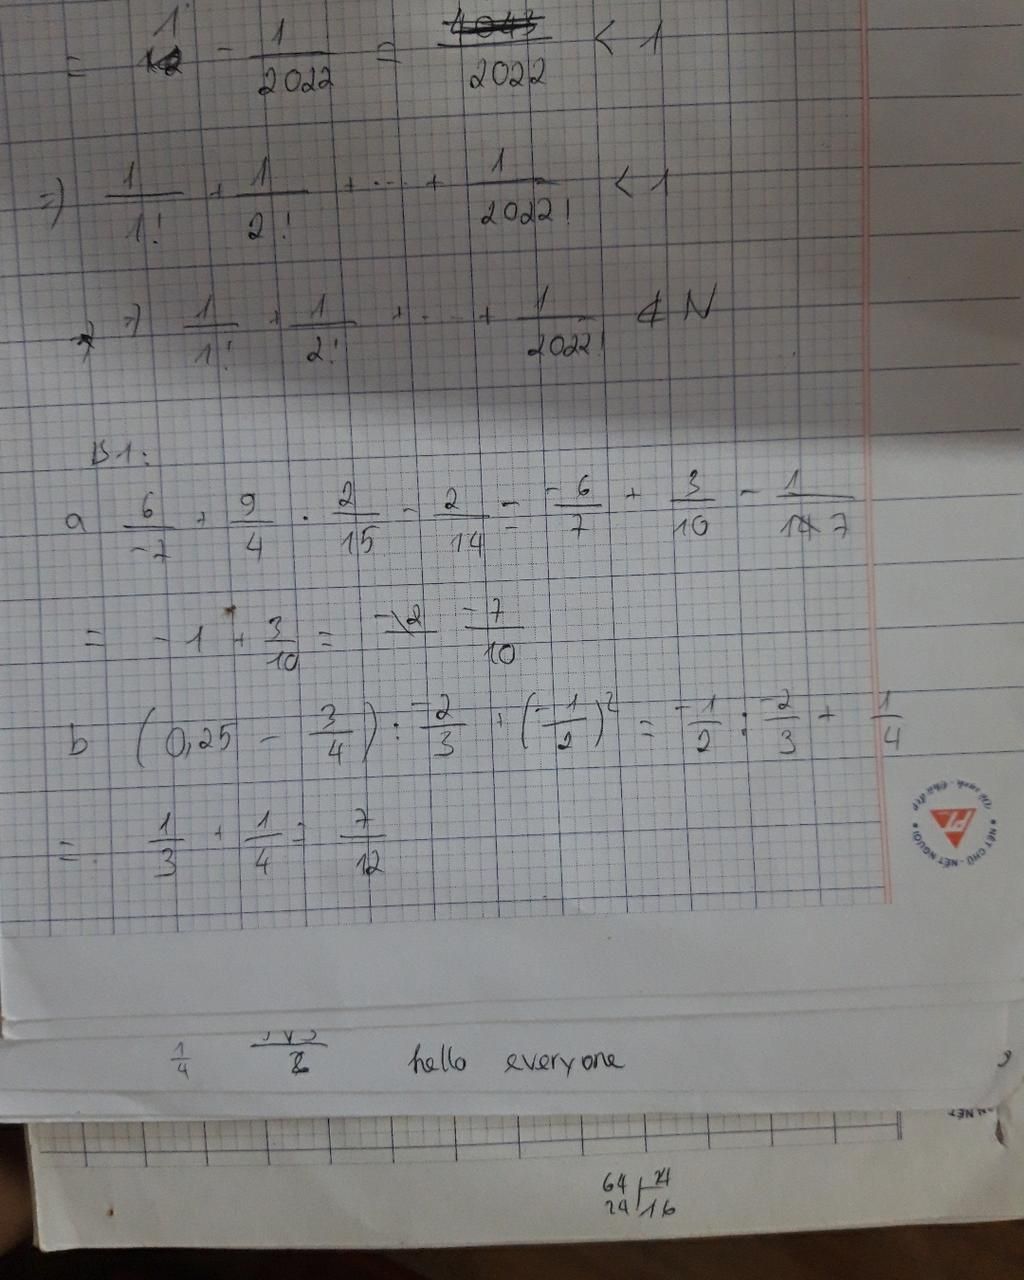 = 1 - 1/2022 = /2022 < 1
=) 1/1! + 1/2! + ... + 1/2022! < 1
=) 1/1! + 1/2! + ... + 1/2022! ∉ N
B1:
a 6/-7 + 9/4 . 2/15 - 2/14 = -6/7 + 3/10 - 1/7
= -1 + 3/10 = -7/10
b (0,25 - 3/4) : -2/3 + (-1/2)² = -1/2 : -2/3 + 1/4
= 1/3 + 1/4 = 7/12
NÉT CHỮ - NẾT NGƯỜI
1/4
hello everyone
64
24 16